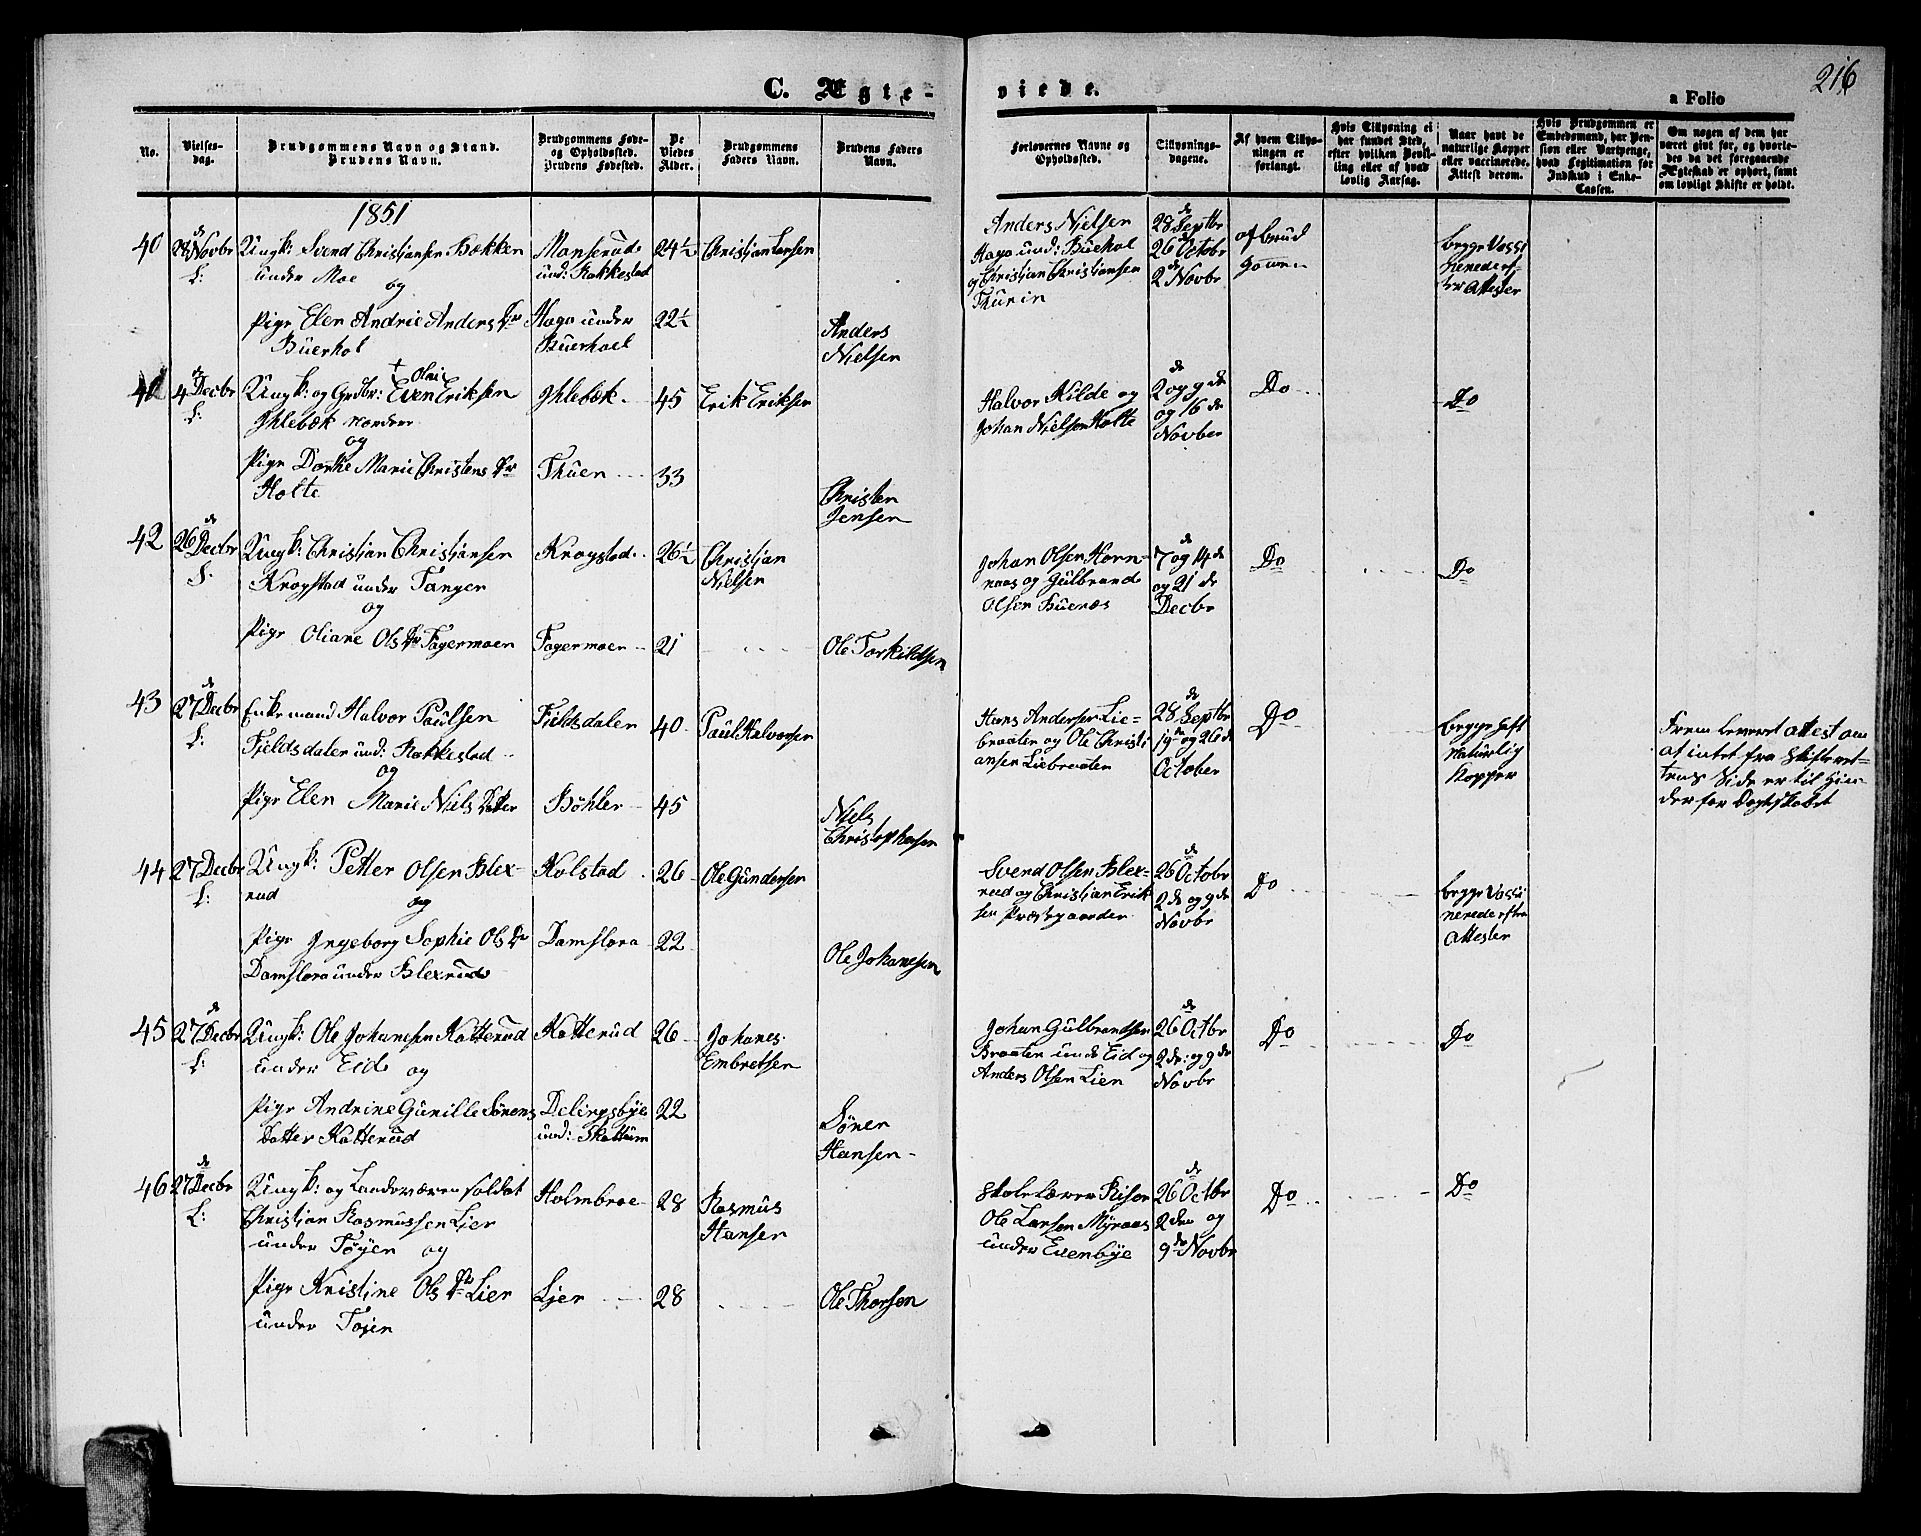 C. Ægte-
viede.
216
a Folio
No.
Vielses-
dag.
Brudgommens Navn og Stand.
Brudens Navn.
Brudgommens Føde-
og Opholdssted.
Brudens Fødested.
De
Viedes
Alder.
Brudgommens
Faders Navn.
Brudens Faders
Navn.
Forlovernes Navne og
Opholdssted.
Tillysnings-
dagene.
Af hvem Tillys-
ningen er
forlangt.
Hvis Tillysning ei
har fundet Sted,
efter hvilken Bevil-
ling eller af hvad
lovlig Aarsag.
Naar havt de
naturlige Kopper
eller vaccinerede.
Attest derom.
Hvis Brudgommen er
Embedsmand, har Pen-
sion eller Vartpenge,
hvad Legitimation for
Indskud i Enke-
Cassen.
Om nogen af dem har
været givt før, og hvorle-
des da det foregaaende
Ægteskab er ophørt, samt
om lovligt Skifte er holdt.
1851
40
28 de Novbr
L:
Ungk: Svend Christjansen Bakken
under Moe
og
Pige Elen Andrie Anders Dr
Buerhol
Monserud
und: Rakkestad
Haga under
Buerhoel
24½
22½
Christjan Larsen
Anders
Nielsen
Anders Nielsen
Haga und: Buehol
og Christjan Christjansen
Thurin
28 de Septbr
26 Octobr
2 de Novbr
af Brud
gom
begge Vassi
nerede ef-
ter Attester
41
4 de Decbr
L:
Ungk: og Grdbr: + Even Eriksen
Olai
Ihlebæk nordre
og
Pige Dorthe Marie Christens Dr
Holte
Ihlebæk
Thuen
45
33
Erik Eriksen
Christen
Jensen
Halvor Kilde og
Johan Nielsen Holte
2 de og 9 de
og 16 de
Novber
Do
Do
42
26 de Decbr
L:
Ungk: Christjan Christjansen
Krogstad under Tanger
og
Pige Oliane Ols Dr Fagermoen
Krogstad
Fagermoen
26½
21
Christjan
Nielsen
Ole Torkildsen
Johan Olsen Horn-
naes og Gulbrand
Olsen Buenæs
7 de og 14 de
og 21 de
Decbr
Do
Do
43
27 de Decbr
L:
Enkemand Halvor Paulsen
Fjeldsdalen und: Rakkestad
og
Pige Elen Marie Niels Datter
Fieldsdalen
Böhler
40
45
Paul Halvorsen
Niels
Christophersen
Hans Andersen Lie-
braaten og Ole Christi
ansen Liebraaten
28 de Septbr
19 de og 26 de
October
Do
begge haft
naturlig
Kopper
Fremleveret Attest om
at intet fra Skifteret-
tens Side er til Hin-
der for Ægteskabet
44
27 Decbr
L:
Ungk: Petter Olsen Blex-
rud
og
Pige Ingeborg Sophie Ols Dr
Damslora under Blexrud
Kolstad
Damslora
26
22
Ole Gundersen
Ole Johannesen
Svend Olsen Blex-
rud og Christjan Erik
sen Præstegaarden
26 de Octobr
2 de og 9 de
Novbr
Do
begge Vassi
nerede efter
Attester
45
27 de Decbr
L:
Ungk: Ole Johannesen Katterud
under Eid
og
Pige Andrine Gunille Sörens
Datter Katterud
Katterud
Delingsbye
und: Skattum
26
22
Johanes
Embretsen
Sören
Hansen
Johan Gulbrandsen
Braaten und Eid og
Anders Olsen Lien
26 de Octbr
2 de: og 9 de
Novbr
Do
Do
46
27 de Decbr
L:
Ungk: og Landeværns soldat
Christjan Rasmussen Lier
under Töyen
og
Pige Kristine Ols Dr Lier
under Tojen
Holmbroe
Ljer
28
28
Rasmus
Hansen
Ole Thorsen
Skolelærer Riser
Ole Larsen Myraas
under Evenbye
26 de Octbr
2 den og
9 de Novbr
Do
Do